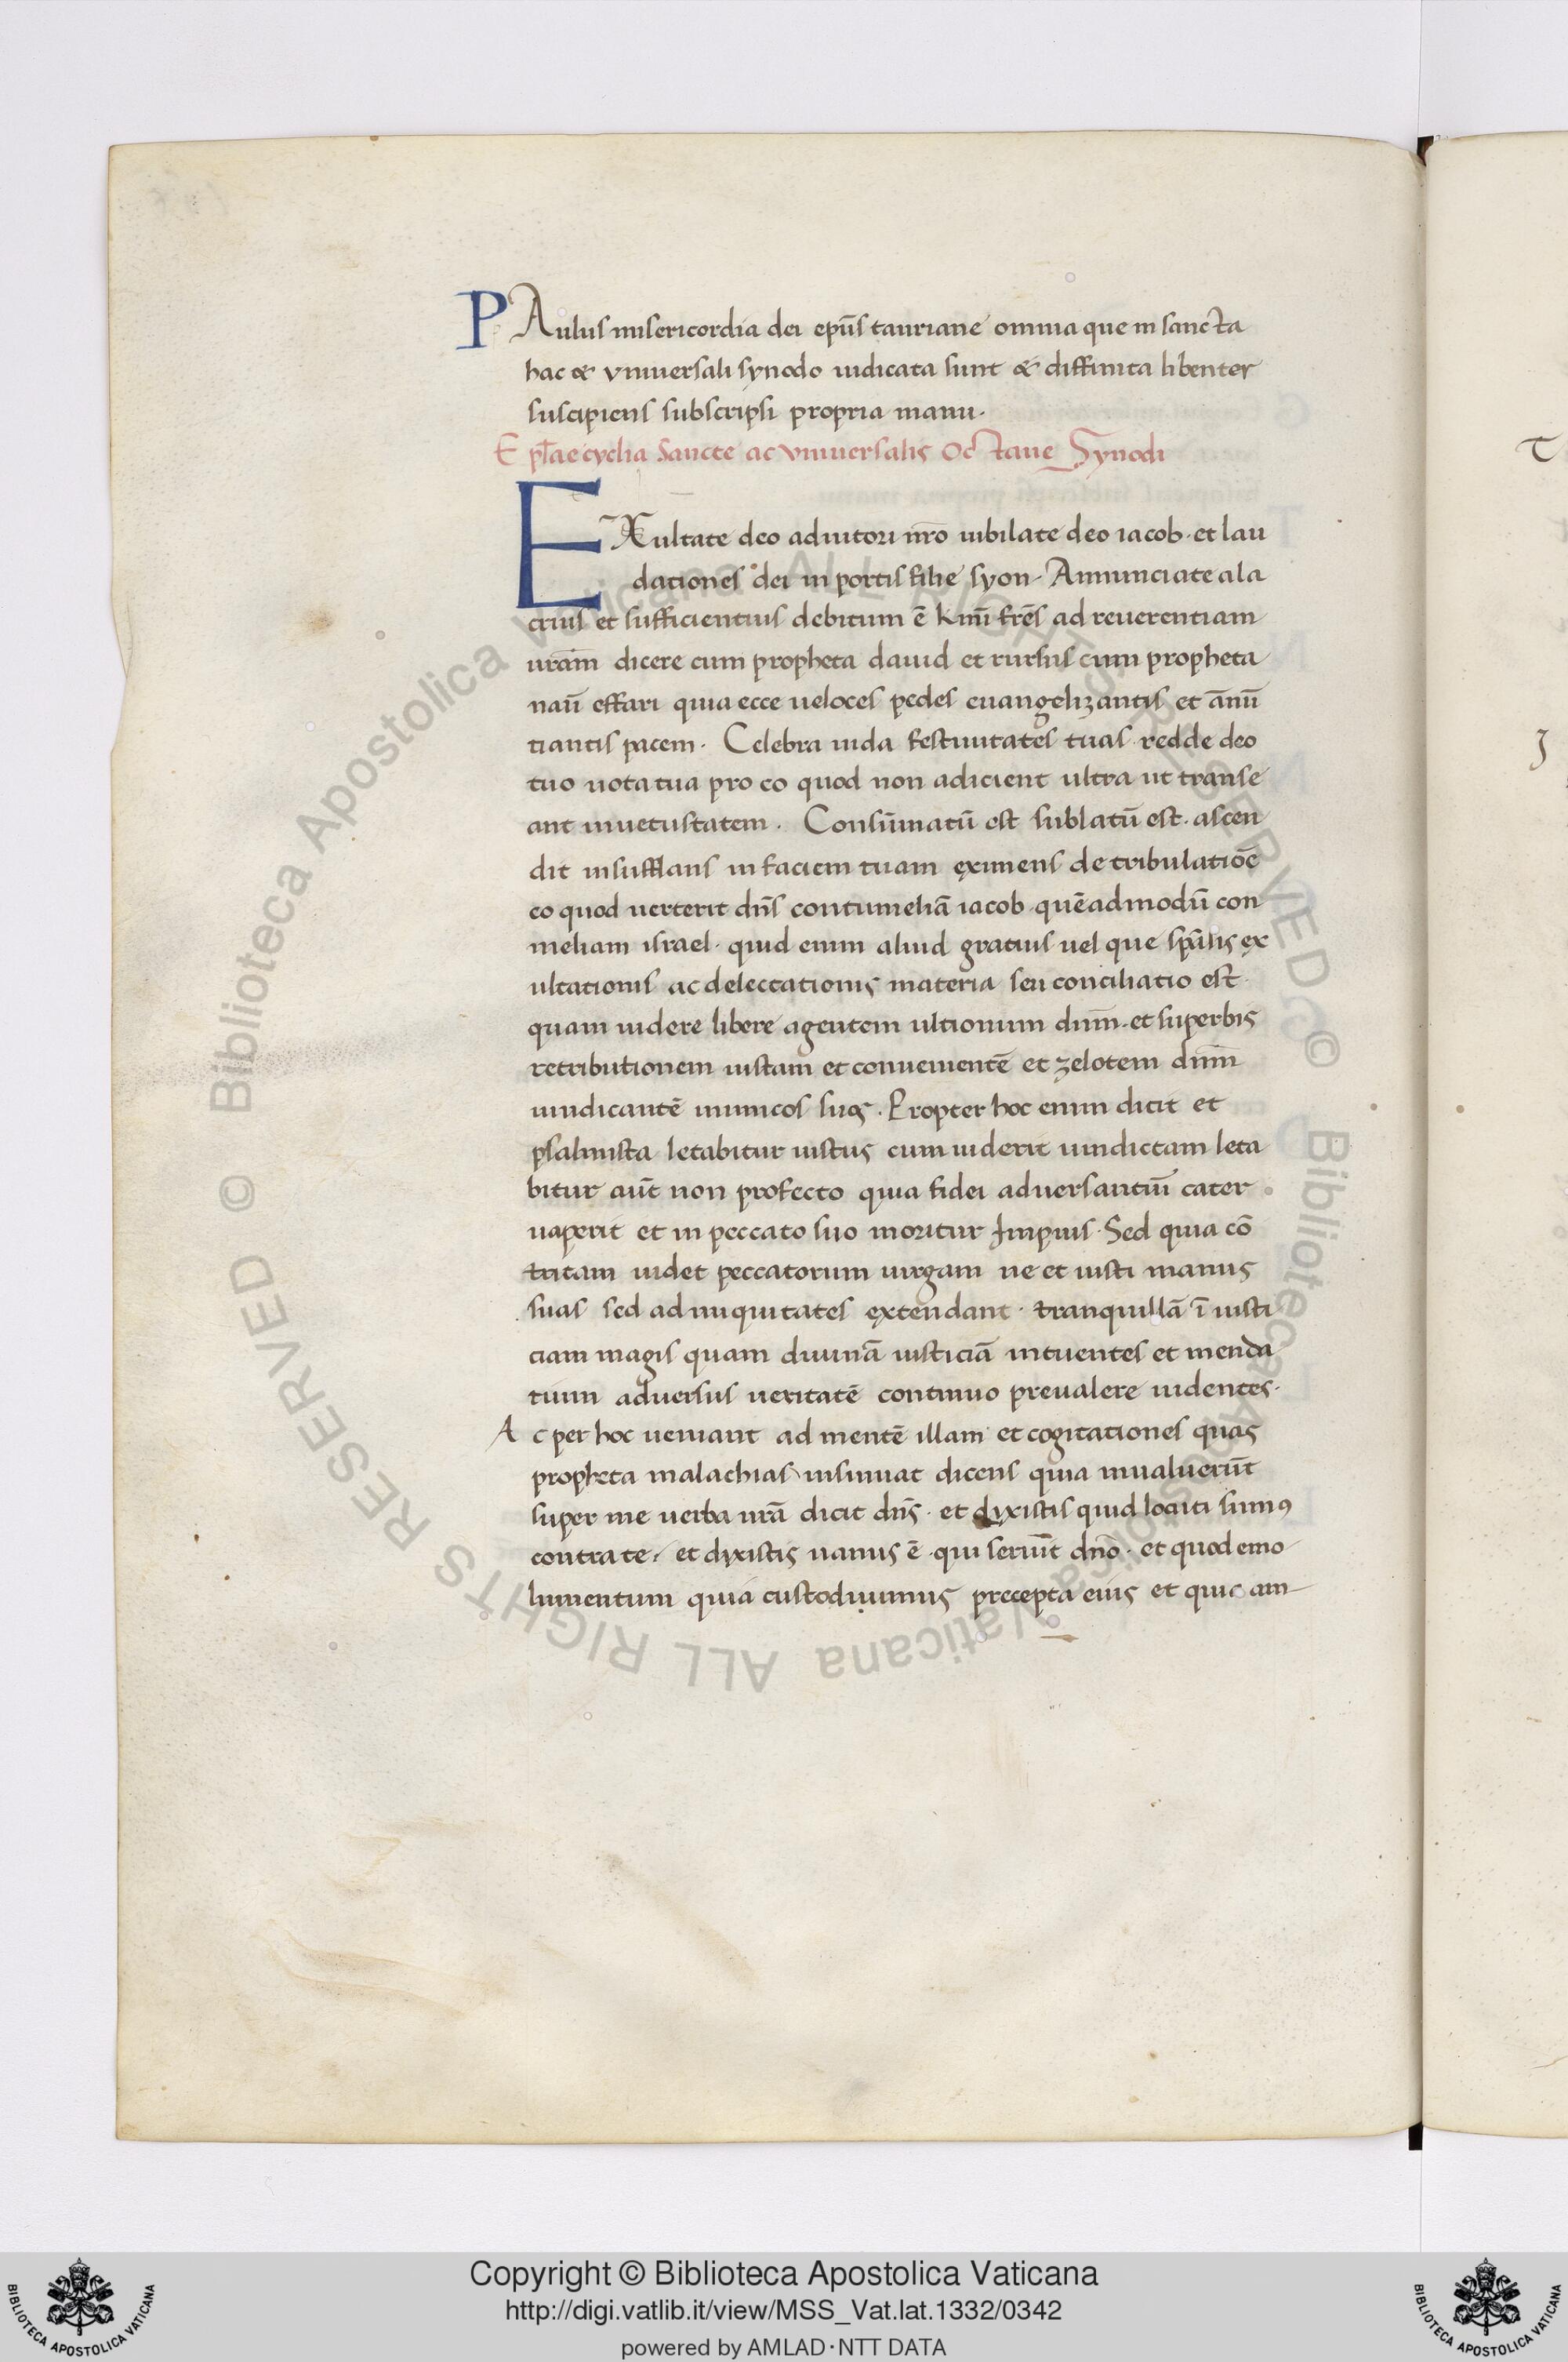 PAulus misericordia dei ep̄us tauriane omnia que in sancta
hac & vniuersali synodo iudicata sunt & diffinita libenter
suscipiens subscripsi propria manu.
Ep̄lae cyclia Sancte ac vniuersalis Octaue Synodi
EXultate deo adiutori nr̄o iubilate deo iacob. et lau
dationes dei in portis filie syon. Annunciate ala
crius et sufficientius debitum ē kmī frēs ad reuerentiam
uram̄ dicere cum propheta dauid et rursus cum propheta
naū effari quia ecce ueloces pedes euangelizantis et ānū
tiantis pacem. Celebra iuda festiuitates tuas redde deo
tuo uota tua pro eo quod non adicient ultra ut transe
ant inuetustatem. Consūmatū est sublatū est. ascen
dit insufflans in faciem tuam eximens de tribulatiōe
eo quod uerterit dn̄s contumeliā iacob quēadmodū con
meliam israel. quid enim aliud gratius uel que sp̄alis ex
ultationis ac delectationis materia seu conciliatio est
quam uidere libere agentem ultionum dnm̄. et superbis
retributionem iustam et conuenientē et zelotem dnm̄
uindicantē inimicos suos. Propter hoc enim dicit et
psalmista letabitur iustus cum uiderit uindictam leta
bitur aūt non profecto quia fidei aduersantiū cater
uaperit et in peccato suo moritur Impius. Sed quia cō
tritam uidet peccatorum uirgam ne et iusti manus
suas sed ad iniquitates extendant. tranquillā ī iusti
ciam magis quam diuinā iusticiā intuentes et menda
tium aduersus ueritatē continuo preualere uidentes.
Ac per hoc ueniant ad mentē illam et cogitationes quas
propheta malachias insinuat dicens quia inualuerūt
super me uerba urā dicit dn̄s. et dyxistis quid locuti sumꝰ
contra te. et dyxistis uanus ē qui seruīt dnō. et quod emo
lumentum quia custodiuimus precepta eius et quic am
Copyright © Biblioteca Apostolica Vaticana
http://digi.vatlib.it/view/MSS_Vat.lat.1332/0342
powered by AMLAD·NTT DATA
BIBLIOTECA APOSTOLICA VATICANA
BIBLIOTECA APOSTOLICA VATICANA
© Biblioteca Apostolica Vaticana ALL RIGHTS RESERVED
© Biblioteca Apostolica Vaticana ALL RIGHTS RESERVED